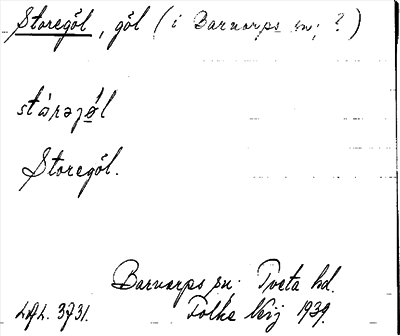 Storegöl, göl (i Barnarps sn; ?)
stårəgø̀l
Storegöl.
Barnarps sn. Tveta hd.
Folke 1939.